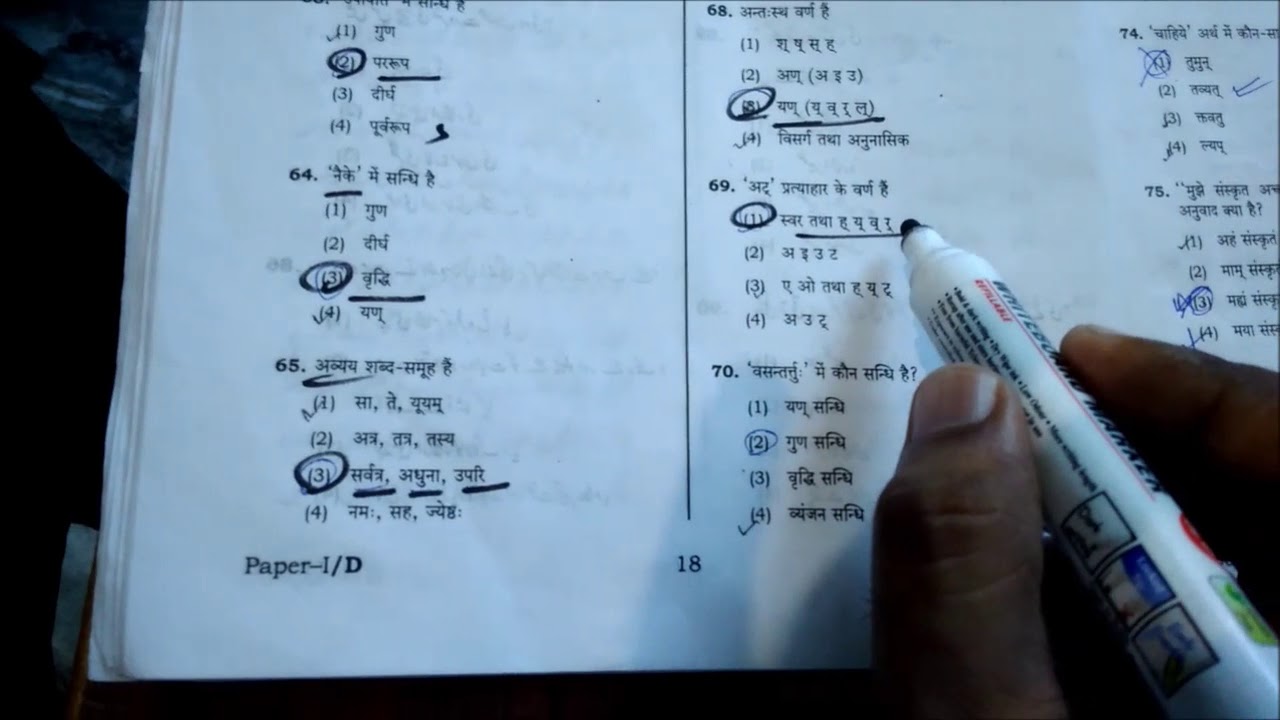 में सन्धि है
(1) गुण
(2) पररूप
(3) दीर्घ
(4) पूर्वरूप
64. 'नैके' में सन्धि है
(1) गुण
(2) दीर्घ
(3) वृद्धि
(4) यण्
65. अव्यय शब्द-समूह हैं
(1) सा, ते, यूयम्
(2) अत्र, तत्र, तस्य
(3) सर्वत्र, अधुना, उपरि
(4) नमः, सह, ज्येष्ठः
68. अन्तःस्थ वर्ण हैं
(1) श् ष् स् ह्
(2) अण् (अ इ उ)
(3) यण् (य् व् र् ल्)
(4) विसर्ग तथा अनुनासिक
69. 'अट्' प्रत्याहार के वर्ण हैं
(1) स्वर तथा ह् य् व् र्
(2) अ इ उ ट
(3) ए ओ तथा ह् य् ट्
(4) अ उ ट्
70. 'वसन्तर्त्तुः' में कौन सन्धि है?
(1) यण् सन्धि
(2) गुण सन्धि
(3) वृद्धि सन्धि
(4) व्यंजन सन्धि
74. 'चाहिये' अर्थ में
(1) तुमुन्
(2) तव्यत्
(3) क्तवतु
(4) ल्यप्
75. "मुझे संस्कृत
अनुवाद क्या है?
(1) अहं
(2) माम्
(3) मह्यं
(4) मया
Paper–I/D
18
WHITEBOARD MARKER
REFILLABLE